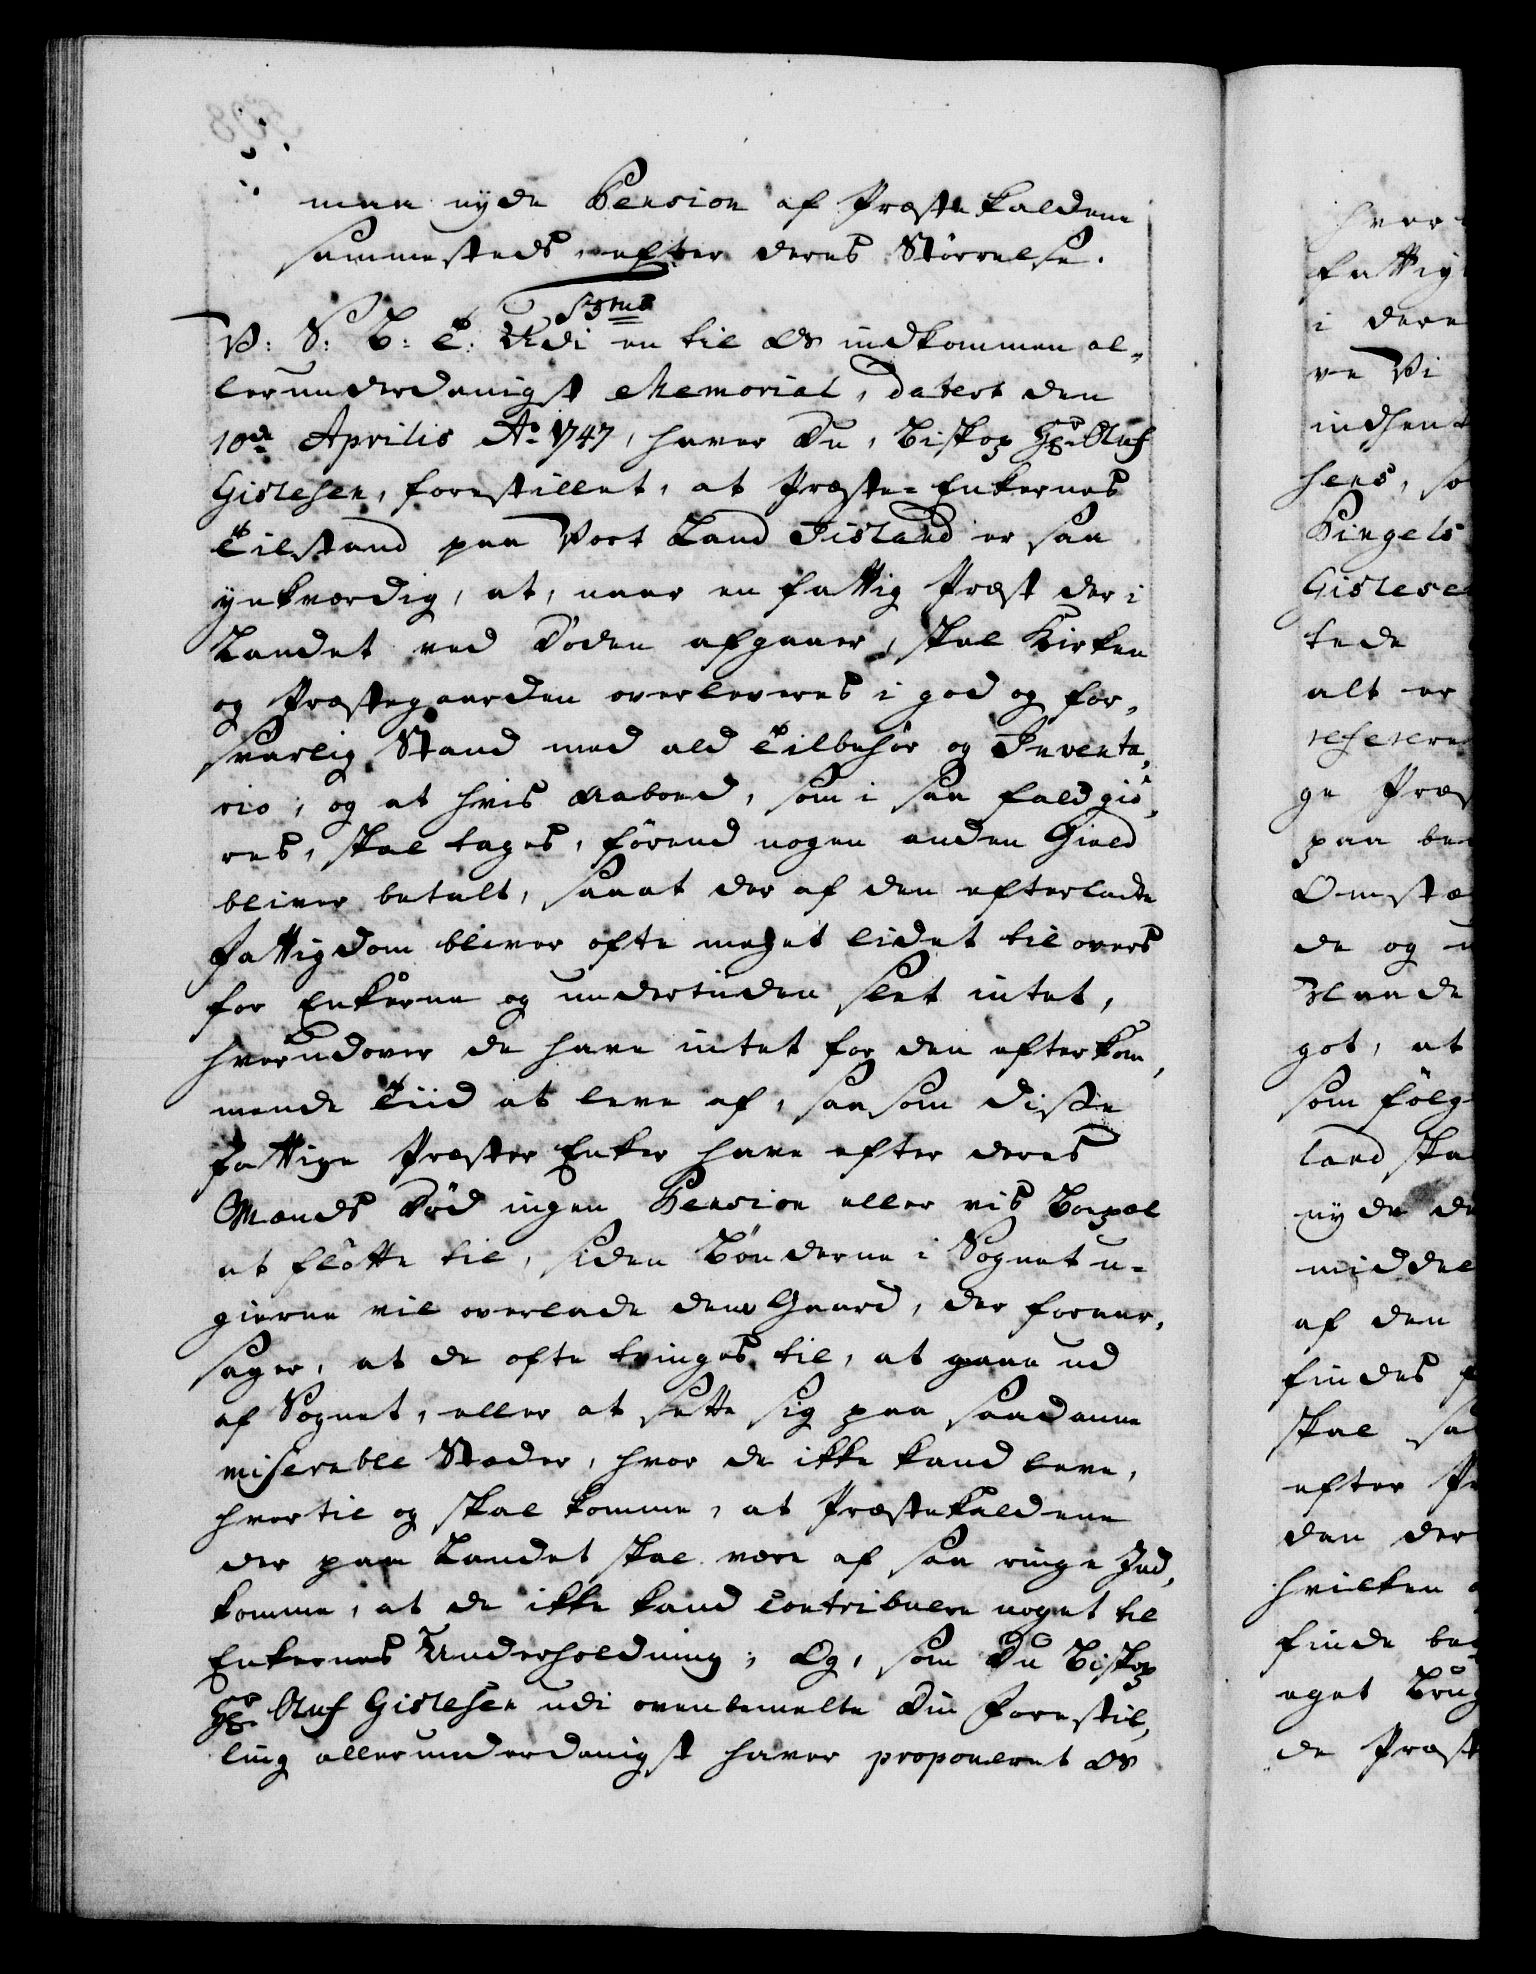 maa nyde Pension af Præste Kaldene
sammesteds, efter deres Størrelse.
V: S: B: T: Udi en til Os indkommen al-
lerunderdanigst Memorial, datert den
10de Aprilis Ao 1747, haver Du, Biskop Hr. Oluf
Gislesen, forestillet, at Præste-Enkernes
Tilstand paa Vort Land Iisland er saa
ynkværdig, at, naar en fattig Præst der i
Landet ved Døden afgaaer, skal Kirken
og Præstegaarden overleveres i god og for-
svarlig Stand med ald Tilbehør og Inventa-
rio, og at hvis Aaboed, som i saa fald giø-
res, skal tages, førend nogen anden Gield
bliver betalt, saa at der af den efterladte
Fattigdom bliver ofte meget lidet til overs
for Enkerne og undertiden slet intet,
hvorudover de have intet for den efterkom-
mende Tiid at leve af, saasom disse
fattige Præster Enker have efter deres
Mænds Død ingen Pension eller vis Boepæl
at fløtte til, siden Bønderne i Sognet u-
gierne vil overlade dem Gaard, der foraar-
sager, at de ofte tvinges til, at gaae ud
af Sognet, eller at sette sig paa saadanne
miserable Stæder, hvor de ikke kand leve,
hvortil og skal komme, at Præstekaldene
der paa Landet skal være af saa ringe Ind-
komme, at de ikke kand contribuere noget til
Enkernes Underholdning; Og, som Du Biskop
Hr. Oluf Gislesen udi ovenbemelte Din Forestil-
ling allerunderdanigst haver proponeret Os
fattig
i dere
ve Vi
indhent
hens, so
Pingels
Gislese
tede
alt er
referere
ge Præs
paa be
Omstæ
de og u
Haande
got, at
som følg
land ska
nyde de
middel
af den
findes
skal sa
efter Pr
den der
hvilken
finde be
eget Brug
de Præst